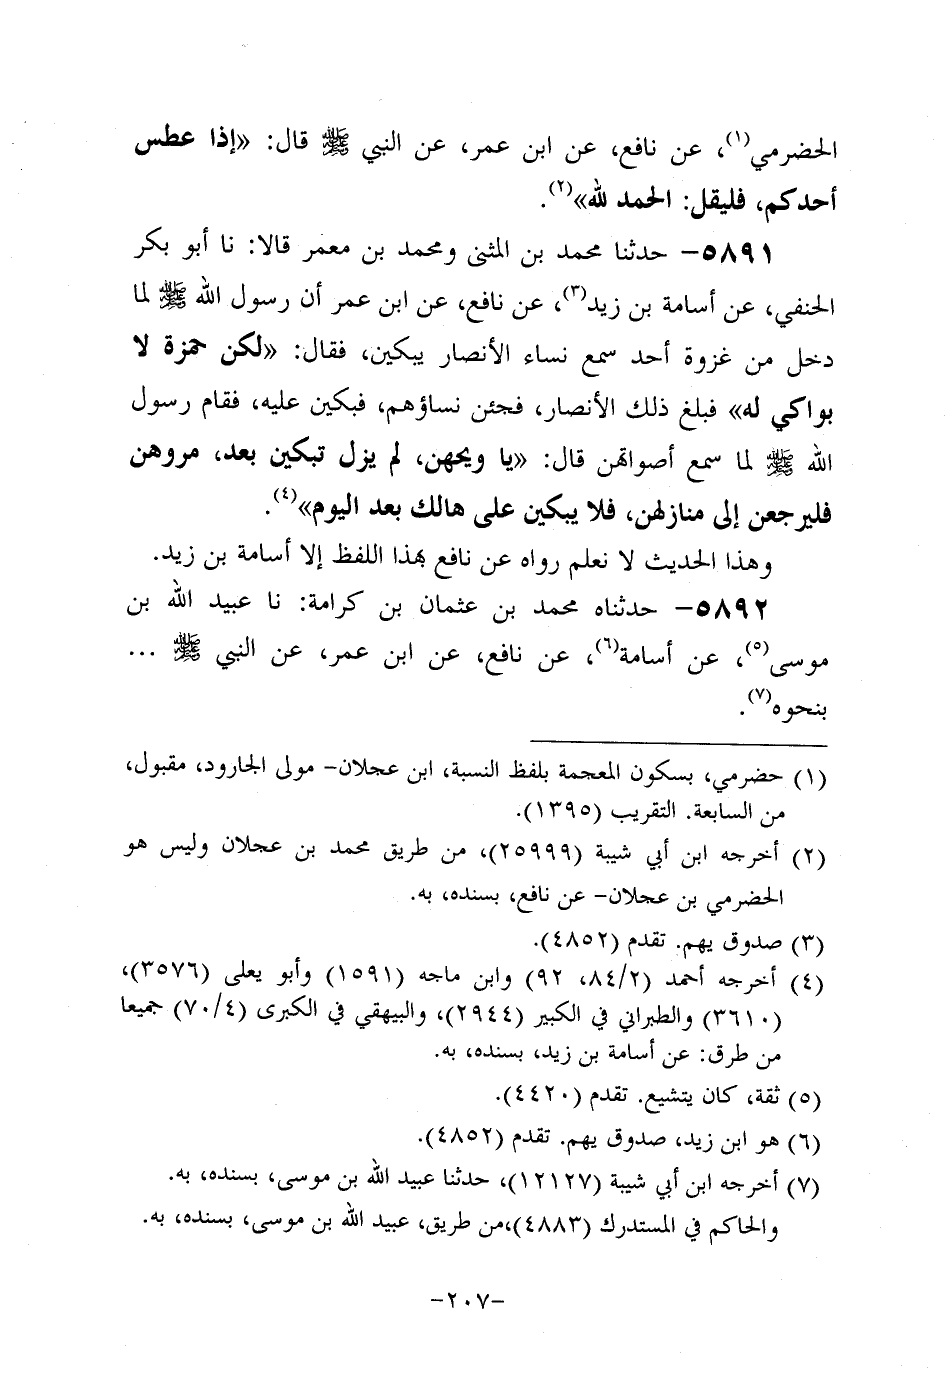 الحضرمي(١)، عن نافع، عن ابن عمر، عن النبي ﷺ قال: «إذا عطس
أحدكم، فليقل: الحمد لله»(٢).
٥٨٩١– حدثنا محمد بن المثنى ومحمد بن معمر قالا: نا أبو بكر
الحنفي، عن أسامة بن زيد(٣)، عن نافع، عن ابن عمر أن رسول الله ﷺ لما
دخل من غزوة أحد سمع نساء الأنصار يبكين، فقال: «لكن حمزة لا
بواكي له» فبلغ ذلك الأنصار، فجئن نساؤهم، فبكين عليه، فقام رسول
الله ﷺ لما سمع أصواتهن قال: «يا ويحهن، لم يزل تبكين بعد، مروهن
فليرجعن إلى منازلهن، فلا يبكين على هالك بعد اليوم»(٤).
وهذا الحديث لا نعلم رواه عن نافع بهذا اللفظ إلا أسامة بن زيد.
٥٨٩٢– حدثناه محمد بن عثمان بن كرامة: نا عبيد الله بن
موسى(٥)، عن أسامة(٦)، عن نافع، عن ابن عمر، عن النبي ﷺ ...
بنحوه(٧).
(١) حضرمي، بسكون المعجمة بلفظ النسبة، ابن عجلان– مولى الجارود، مقبول،
من السابعة. التقريب (١٣٩٥).
(٢) أخرجه ابن أبي شيبة (٢٥٩٩٩)، من طريق محمد بن عجلان وليس هو
الحضرمي بن عجلان– عن نافع، بسنده، به.
(٣) صدوق يهم. تقدم (٤٨٥٢).
(٤) أخرجه أحمد (٨٤/٢، ٩٢) وابن ماجه (١٥٩١) وأبو يعلى (٣٥٧٦)،
(٣٦١٠) والطبراني في الكبير (٢٩٤٤)، والبيهقي في الكبرى (٧٠/٤) جميعا
من طرق: عن أسامة بن زيد، بسنده، به.
(٥) ثقة، كان يتشيع. تقدم (٤٤٢٠).
(٦) هو ابن زيد، صدوق يهم. تقدم (٤٨٥٢).
(٧) أخرجه ابن أبي شيبة (١٢١٢٧)، حدثنا عبيد الله بن موسى، بسنده، به.
والحاكم في المستدرك (٤٨٨٣)،من طريق، عبيد الله بن موسى، بسنده، به.
–٢٠٧–